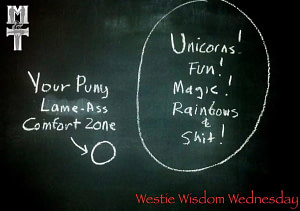 M
T
Your Puny
Lame-Ass
Comfort Zone
Unicorns!
Fun!
Magic!
Rainbows
&
Shit!
Westie Wisdom Wednesday